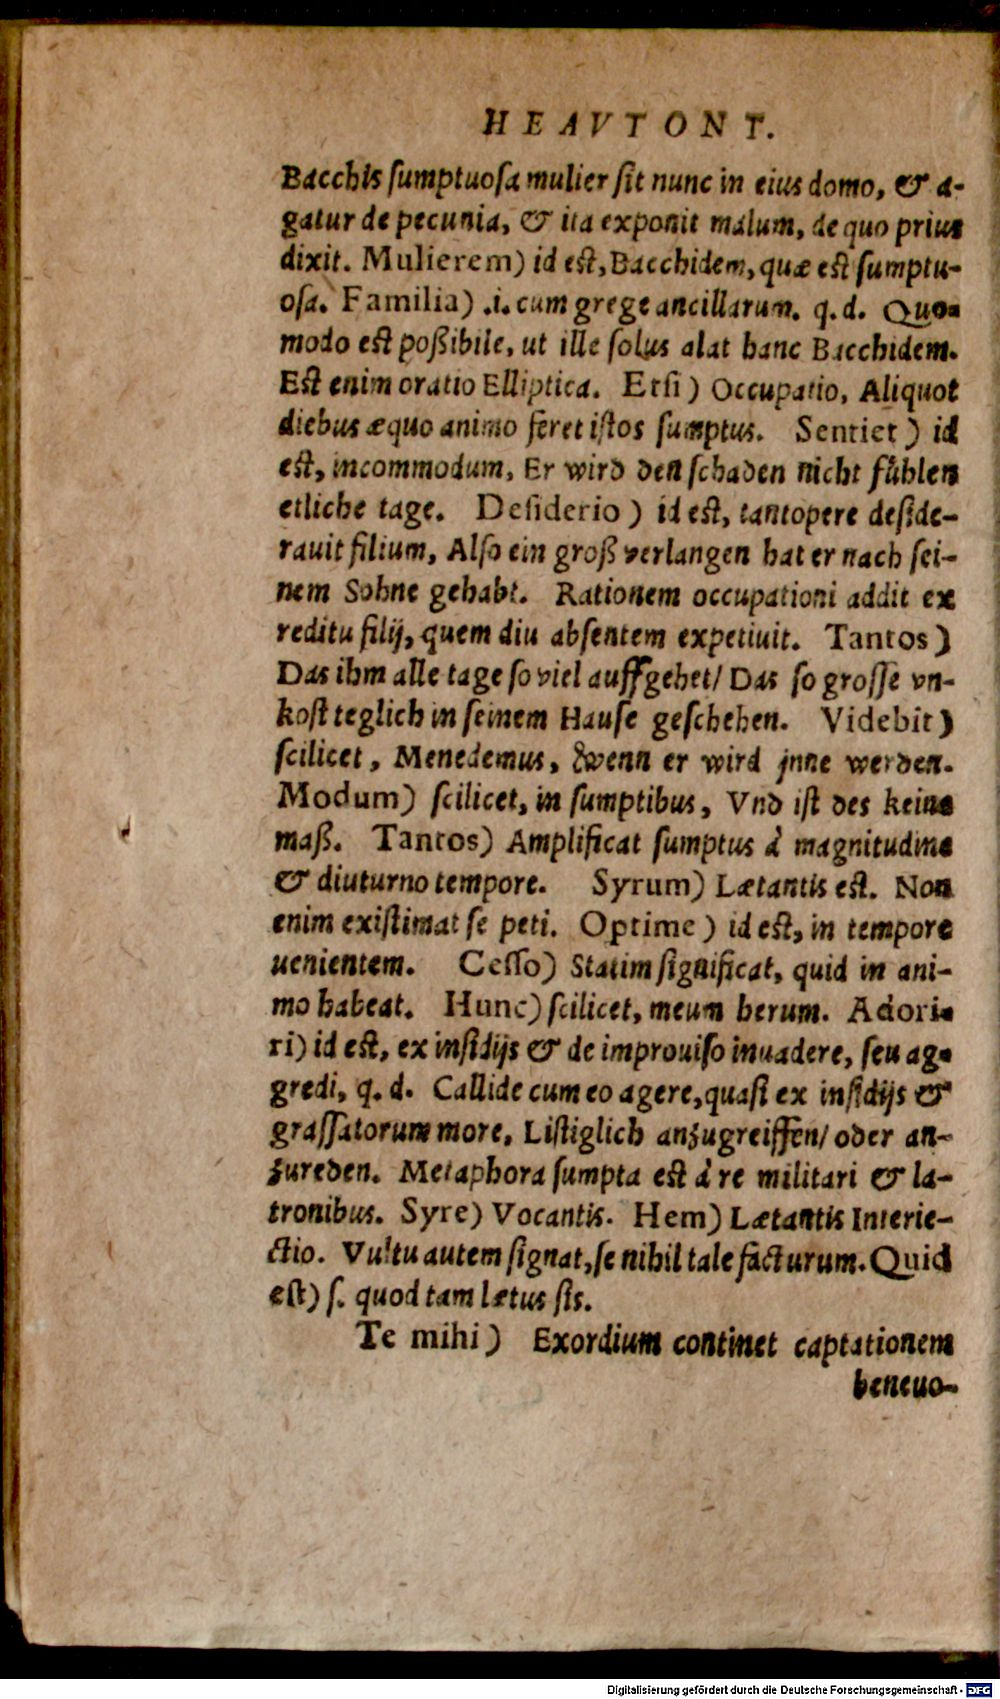 HEAVTONT.
Bacchis ſumptuoſa mulier ſit nunc in eius domo, & a-
gatur de pecunia, & ita exponit malum, de quo prius
dixit. Mulierem) id eſt, Bacchidem, quæ eſt ſumptu-
oſa. Familia) .i. cum grege ancillarum. q. d. Quo-
modo eſt poßibile, ut ille ſolus alat hanc Bacchidem.
Eſt enim oratio Elliptica. Etſi) Occupatio, Aliquot
diebus æquo animo feret iſtos ſumptus. Sentiet) id
eſt, incommodum, Er wird den ſchaden nicht fühlen
etliche tage. Deſiderio) id eſt, tantopere deſide-
rauit filium, Alſo ein groß verlangen hat er nach ſei-
nem Sohne gehabt. Rationem occupationi addit ex
reditu filij, quem diu abſentem expetiuit. Tantos)
Das ihm alle tage ſo viel auffgehet/ Das ſo groſſe vn-
koſt teglich in ſeinem Hauſe geſchehen. Videbit)
ſcilicet, Menedemus, wenn er wird jnne werden.
Modum) ſcilicet, in ſumptibus, Vnd iſt des keine
maß. Tantos) Amplificat ſumptus à magnitudine
& diuturno tempore. Syrum) Lætantis eſt. Non
enim exiſtimat ſe peti. Optime) id eſt, in tempore
uenientem. Ceſſo) Statim ſignificat, quid in ani-
mo habeat. Hunc) ſcilicet, meum herum. Adori-
ri) id eſt, ex inſidijs & de improuiſo inuadere, ſeu ag-
gredi, q. d. Callide cum eo agere, quaſi ex inſidijs &
graſſatorum more, Liſtiglich anzugreiffen/ oder an-
zureden. Metaphora ſumpta eſt à re militari & la-
tronibus. Syre) Vocantis. Hem) Lætantis Interie-
ctio. Vultu autem ſignat, ſe nihil tale facturum. Quid
eſt) ſ. quod tam lætus ſis.
Te mihi) Exordium continet captationem
beneuo-
Digitalisierung gefördert durch die Deutsche Forschungsgemeinschaft - DFG